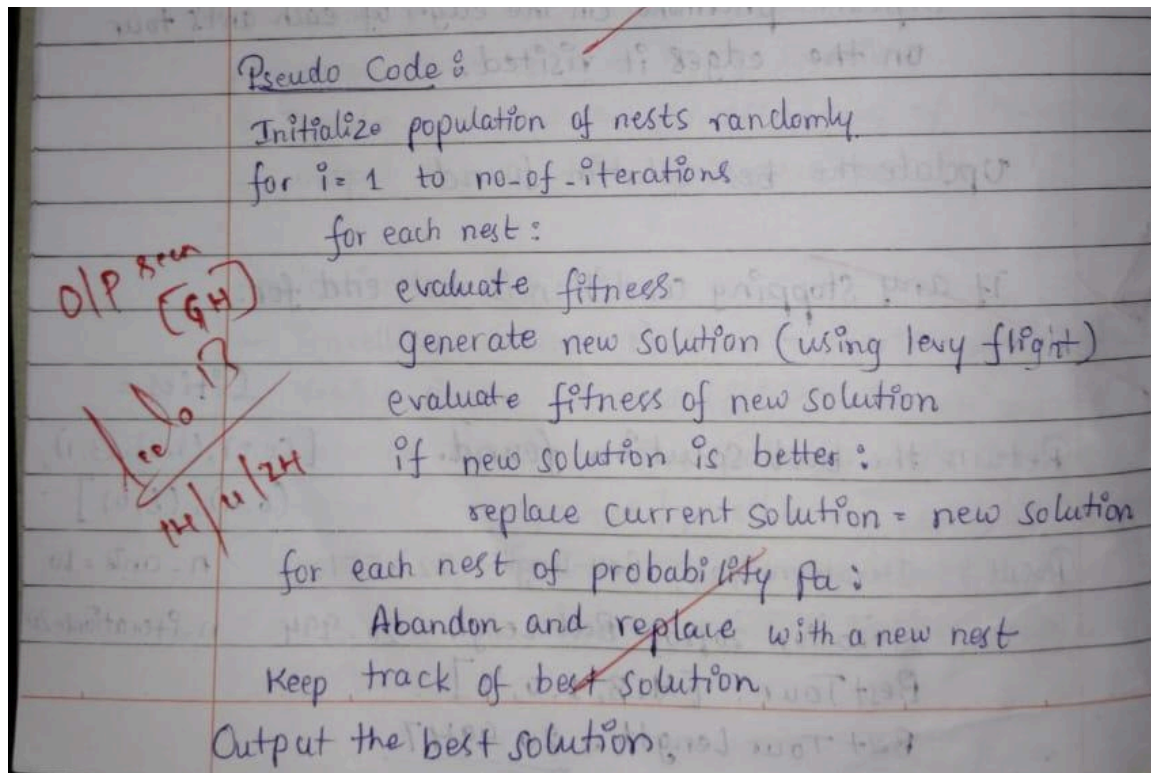 Pseudo Code :
Initialize population of nests randomly.
for i = 1 to no-of-iterations
for each nest :
evaluate fitness
generate new solution (using levy flight)
evaluate fitness of new solution
if new solution is better :
replace current solution = new solution
for each nest of probability Pa :
Abandon and replace with a new nest
Keep track of best solution
Output the best solution.
O/P seen